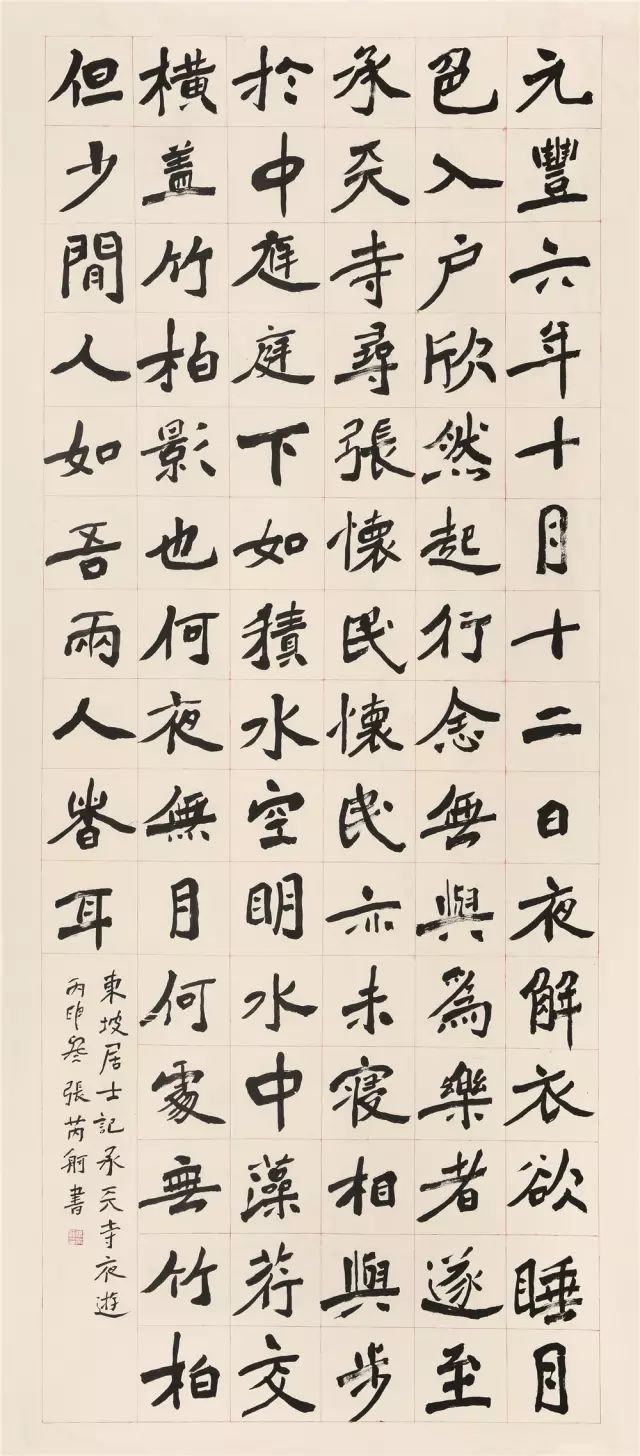 元豐六年十月十二日夜解衣欲睡月
色入户欣然起行念無與為樂者遂至
承天寺尋張懷民懷民亦未寝相與步
於中庭庭下如積水空明水中藻荇交
橫盖竹柏影也何夜無月何處無竹柏
但少閒人如吾兩人者耳
東坡居士記承天寺夜遊
丙申冬張芮舸書